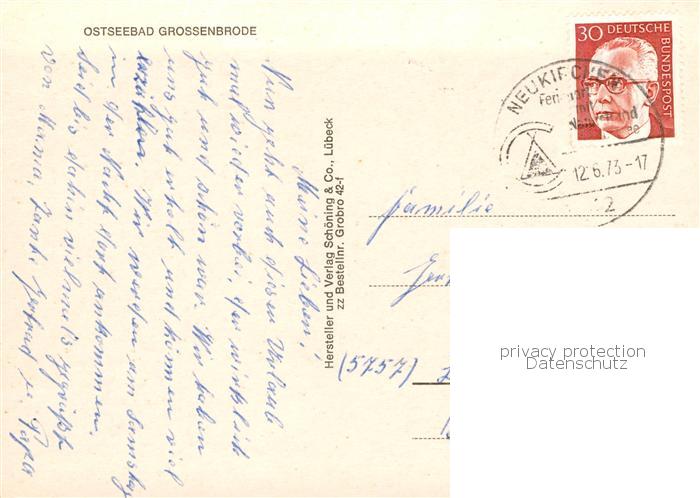 OSTSEEBAD GROSSENBRODE
Meine Lieben!
Nun geht auch dieser Urlaub
mal wieder vorbei, der wirklich
gut und schön war. Wir haben
uns gut erholt und können viel
erzählen. Wir werden am Samstag
in der Nacht dort ankommen.
Seid bis dahin vielmals gegrüßt
von Mama, Tante Gertrud u. Papa
Hersteller und Verlag Schöning & Co., Lübeck
zz Bestellnr. Grobro 42-f
30 DEUTSCHE BUNDESPOST
NEUKIRCHEN
12.6.73-17
2
Familie
(5757)
privacy protection
Datenschutz